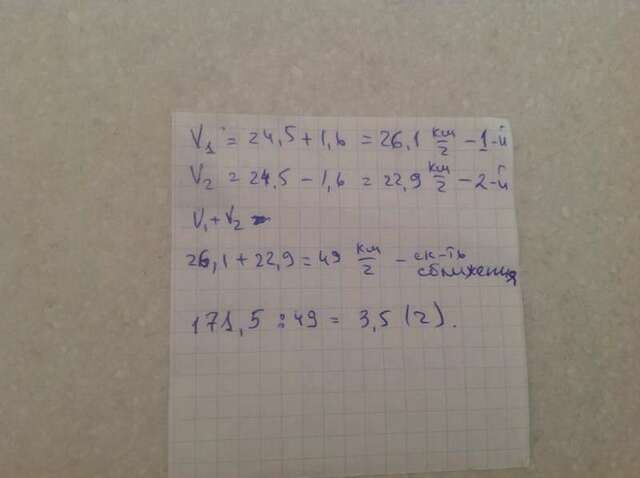 V₁ = 24,5 + 1,6 = 26,1 км/г - 1-й
V₂ = 24,5 - 1,6 = 22,9 км/г - 2-й
V₁ + V₂
26,1 + 22,9 = 49 км/г - ск-ть сближения
171,5 : 49 = 3,5 (г).